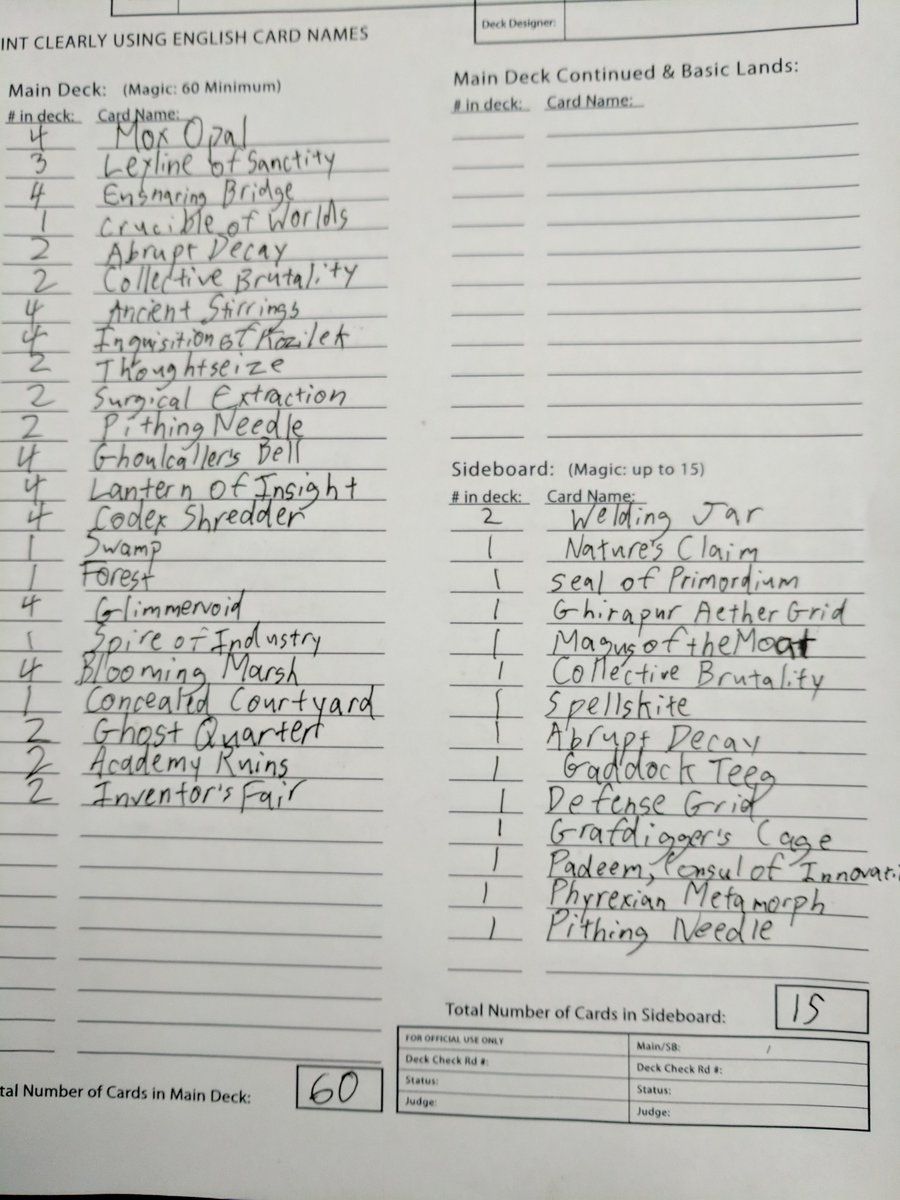 Deck Designer:
INT CLEARLY USING ENGLISH CARD NAMES
Main Deck: (Magic: 60 Minimum)
# in deck: Card Name:
4 Mox Opal
3 Leyline of Sanctity
4 Ensnaring Bridge
1 Crucible of Worlds
2 Abrupt Decay
2 Collective Brutality
4 Ancient Stirrings
4 Inquisition of Kozilek
2 Thoughtseize
2 Surgical Extraction
2 Pithing Needle
4 Ghoulcaller's Bell
4 Lantern of Insight
4 Codex Shredder
1 Swamp
1 Forest
4 Glimmervoid
1 Spire of Industry
4 Blooming Marsh
1 Concealed Courtyard
2 Ghost Quarter
2 Academy Ruins
2 Inventor's Fair
tal Number of Cards in Main Deck: 60
Main Deck Continued & Basic Lands:
# in deck: Card Name:
Sideboard: (Magic: up to 15)
# in deck: Card Name:
2 Welding Jar
1 Nature's Claim
1 Seal of Primordium
1 Ghirapur Aether Grid
1 Magus of the Moat
1 Collective Brutality
1 Spellskite
1 Abrupt Decay
1 Gaddock Teeg
1 Defense Grid
1 Grafdigger's Cage
1 Padeem, Consul of Innovati
1 Phyrexian Metamorph
1 Pithing Needle
Total Number of Cards in Sideboard: 15
FOR OFFICIAL USE ONLY
Main/SB: /
Deck Check Rd #:
Deck Check Rd #:
Status:
Status:
Judge:
Judge: